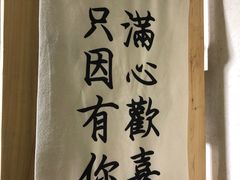 滿心歡喜
只因有你